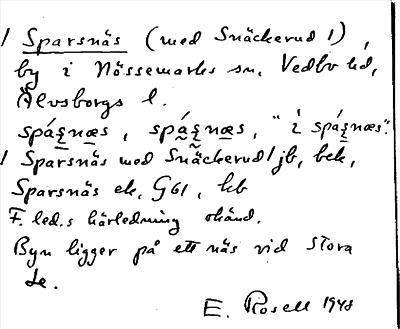 / Sparsnäs (med Snäckerud 1),
by i Nössemarks sn, Vedbo hd,
Älvsborgs l.
spá̱rnæs, spá̱rnæs, "i spárnæs".
/ Sparsnäs med Snäckerud / jb, bek,
Sparsnäs ek, G61, kb
F. led.s härledning okänd.
Byn ligger på ett näs vid Stora
Le.
E. Rosell 1948